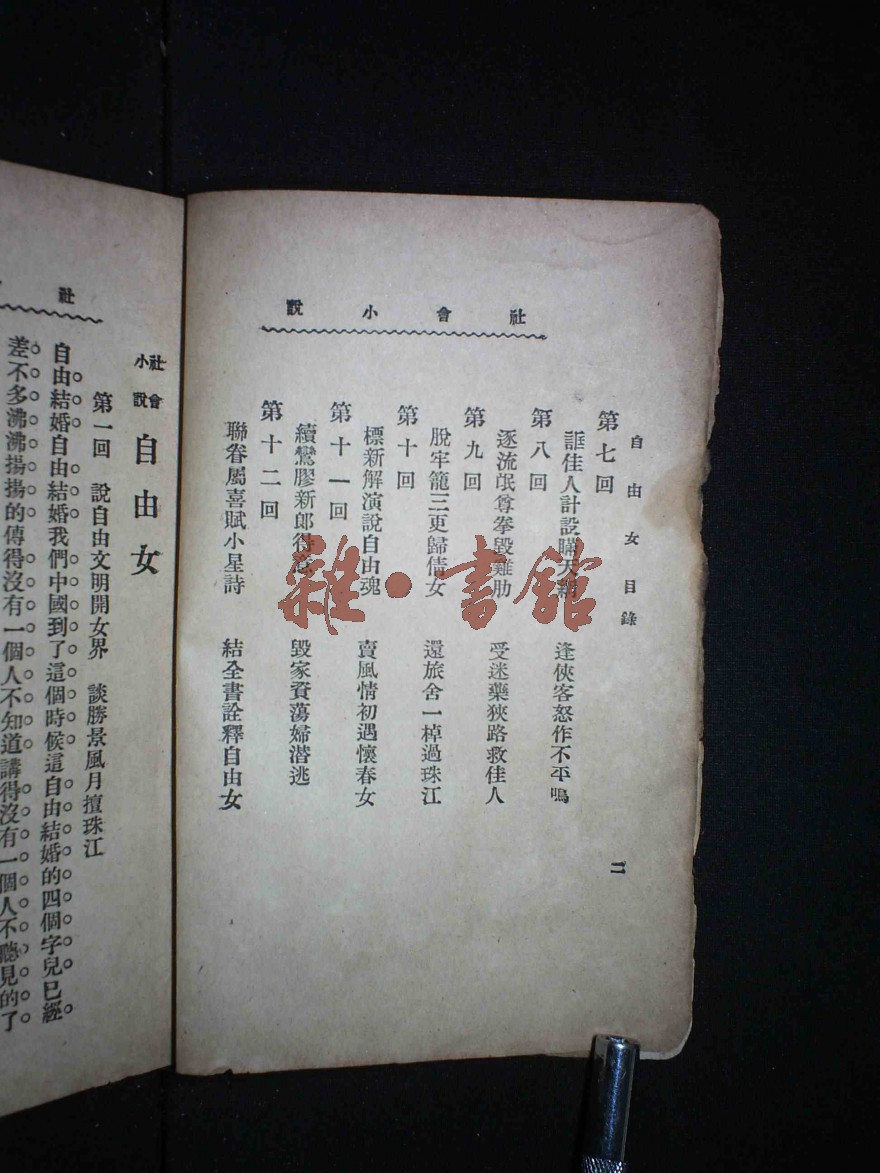 社會小說
自由女目錄
二
第七回
誆佳人計設瞞天網　逢俠客怒作不平鳴
第八回
逐流氓尊拳毀雞肋　受迷藥狹路救佳人
第九回
脫牢籠三更歸倩女　還旅舍一棹過珠江
第十回
標新解演說自由魂　賣風情初遇懷春女
第十一回
續鸞膠新郎得意　毀家資蕩婦潛逃
第十二回
聯眷屬喜賦小星詩　結全書詮釋自由女
雜·書館
社
社會小說　自由女
第一回　說自由文明開女界　談勝景風月擅珠江
自由結婚自由結婚我們中國到了這個時候這自由結婚的四個字兒已經
差不多沸沸揚揚的傳得沒有一個人不知道講得沒有一個人不聽見的了